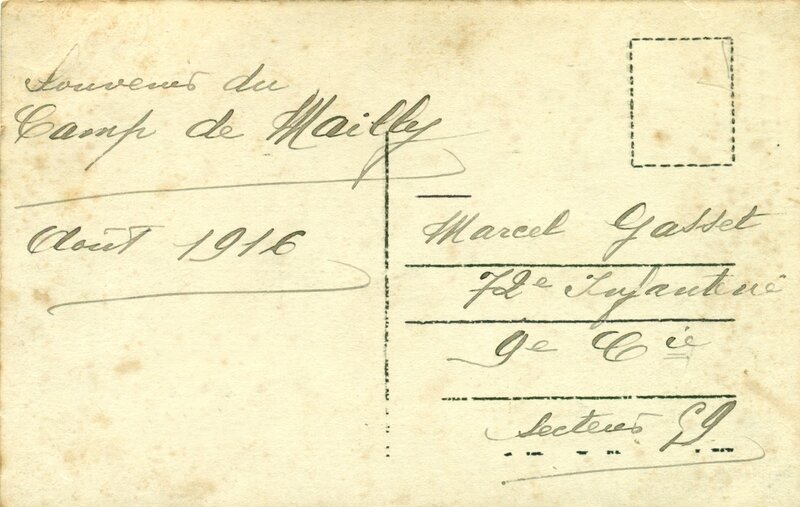 Souvenir du
Camp de Mailly
Août 1916
Marcel Gasset
72e Infanterie
9e Cie
Secteur 59